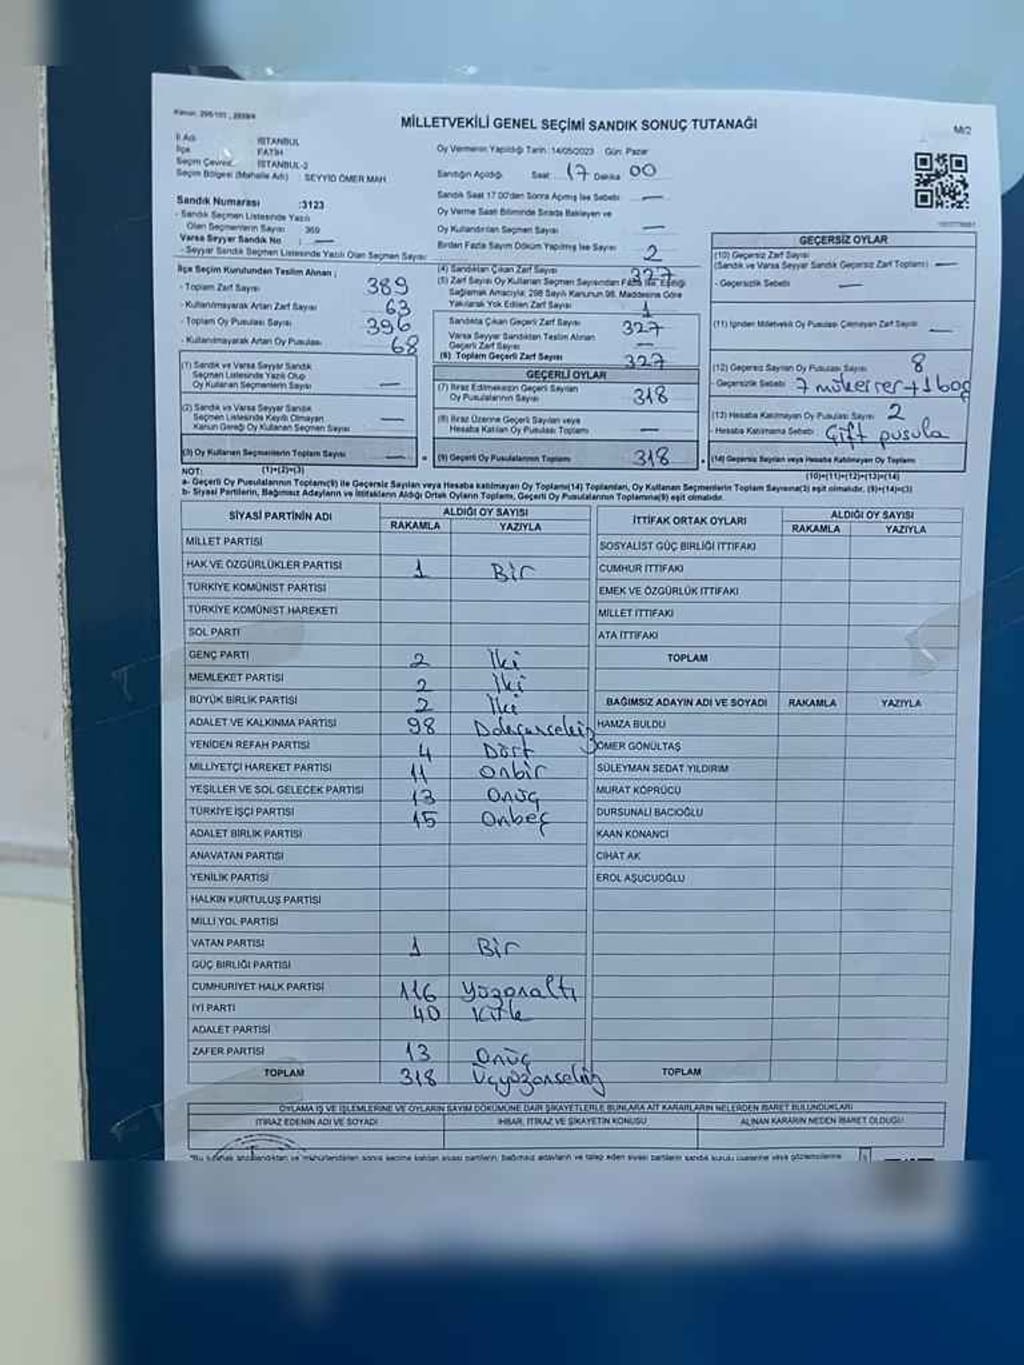 Kanun: 298/101 , 2839/4
MİLLETVEKİLİ GENEL SEÇİMİ SANDIK SONUÇ TUTANAĞI
M/2
İl Adı : İSTANBUL
İlçe : FATİH
Seçim Çevresi : İSTANBUL-2
Seçim Bölgesi (Mahalle Adı) : SEYYİD ÖMER MAH.
Oy Vermenin Yapıldığı Tarih: 14/05/2023 Gün: Pazar
Sandığın Açıldığı Saat: 17 Dakika 00
Sandık Numarası :3123
- Sandık Seçmen Listesinde Yazılı
Olan Seçmenlerin Sayısı 369
Varsa Seyyar Sandık No : —
- Seyyar Sandık Seçmen Listesinde Yazılı Olan Seçmen Sayısı:
Sandık Saat 17.00'den Sonra Açılmış İse Sebebi: —
Oy Verme Saati Bitiminde Sırada Bekleyen ve
Oy Kullandırılan Seçmen Sayısı —
Birden Fazla Sayım Döküm Yapılmış İse Sayısı 2
İlçe Seçim Kurulundan Teslim Alınan :
- Toplam Zarf Sayısı 389
- Kullanılmayarak Artan Zarf Sayısı 63
- Toplam Oy Pusulası Sayısı 396
- Kullanılmayarak Artan Oy Pusulası 68
(1) Sandık ve Varsa Seyyar Sandık
Seçmen Listesinde Yazılı Olup
Oy Kullanan Seçmenlerin Sayısı —
(2) Sandık ve Varsa Seyyar Sandık
Seçmen Listesinde Kayıtlı Olmayan
Kanun Gereği Oy Kullanan Seçmen Sayısı —
(3) Oy Kullanan Seçmenlerin Toplam Sayısı —
(1)+(2)=(3)
(4) Sandıktan Çıkan Zarf Sayısı 327
(5) Zarf Sayısı Oy Kullanan Seçmen Sayısından Fazla İse, Eşitliği
Sağlamak Amacıyla; 298 Sayılı Kanunun 98. Maddesine Göre
Yakılarak Yok Edilen Zarf Sayısı 1
Sandıkta Çıkan Geçerli Zarf Sayısı 327
Varsa Seyyar Sandıktan Teslim Alınan
Geçerli Zarf Sayısı —
(6) Toplam Geçerli Zarf Sayısı 327
GEÇERLİ OYLAR
(7) İtiraz Edilmeksizin Geçerli Sayılan
Oy Pusulalarının Sayısı 318
(8) İtiraz Üzerine Geçerli Sayılan veya
Hesaba Katılan Oy Pusulası Toplamı —
(9) Geçerli Oy Pusulalarının Toplamı 318
GEÇERSİZ OYLAR
(10) Geçersiz Zarf Sayısı
(Sandık ve Varsa Seyyar Sandık Geçersiz Zarf Toplamı) —
- Geçersizlik Sebebi —
(11) İçinden Milletvekili Oy Pusulası Çıkmayan Zarf Sayısı —
(12) Geçersiz Sayılan Oy Pusulası Sayısı 8
- Geçersizlik Sebebi: 7 mükerrer+1 boş
(13) Hesaba Katılmayan Oy Pusulası Sayısı 2
- Hesaba Katılmama Sebebi: Çift pusula
(14) Geçersiz Sayılan veya Hesaba Katılmayan Oy Toplamı
(10)+(11)+(12)+(13)=(14)
NOT:
a- Geçerli Oy Pusulalarının Toplamı(9) ile Geçersiz Sayılan veya Hesaba katılmayan Oy Toplamı(14) Toplamları, Oy Kullanan Seçmenlerin Toplam Sayısına(3) eşit olmalıdır. (9)+(14)=(3)
b- Siyasi Partilerin, Bağımsız Adayların ve İttifakların Aldığı Ortak Oyların Toplamı, Geçerli Oy Pusulalarının Toplamına(9) eşit olmalıdır.
SİYASİ PARTİNİN ADI ALDIĞI OY SAYISI
RAKAMLA YAZIYLA
MİLLET PARTİSİ
HAK VE ÖZGÜRLÜKLER PARTİSİ 1 Bir
TÜRKİYE KOMÜNİST PARTİSİ
TÜRKİYE KOMÜNİST HAREKETİ
SOL PARTİ
GENÇ PARTİ 2 İki
MEMLEKET PARTİSİ 2 İki
BÜYÜK BİRLİK PARTİSİ 2 İki
ADALET VE KALKINMA PARTİSİ 98 Doksansekiz
YENİDEN REFAH PARTİSİ 4 Dört
MİLLİYETÇİ HAREKET PARTİSİ 11 Onbir
YEŞİLLER VE SOL GELECEK PARTİSİ 13 Onüç
TÜRKİYE İŞÇİ PARTİSİ 15 Onbeş
ADALET BİRLİK PARTİSİ
ANAVATAN PARTİSİ
YENİLİK PARTİSİ
HALKIN KURTULUŞ PARTİSİ
MİLLİ YOL PARTİSİ
VATAN PARTİSİ 1 Bir
GÜÇ BİRLİĞİ PARTİSİ
CUMHURİYET HALK PARTİSİ 116 Yüzonaltı
İYİ PARTİ 40 Kırk
ADALET PARTİSİ
ZAFER PARTİSİ 13 Onüç
TOPLAM 318 Üçyüzonsekiz
İTTİFAK ORTAK OYLARI ALDIĞI OY SAYISI
RAKAMLA YAZIYLA
SOSYALİST GÜÇ BİRLİĞİ İTTİFAKI
CUMHUR İTTİFAKI
EMEK VE ÖZGÜRLÜK İTTİFAKI
MİLLET İTTİFAKI
ATA İTTİFAKI
TOPLAM
BAĞIMSIZ ADAYIN ADI VE SOYADI RAKAMLA YAZIYLA
HAMZA BULDU
ÖMER GÖNÜLTAŞ
SÜLEYMAN SEDAT YILDIRIM
MURAT KÖPRÜCÜ
DURSUNALİ BACIOĞLU
KAAN KONANCI
CİHAT AK
EROL AŞUCUOĞLU
TOPLAM
OYLAMA İŞ VE İŞLEMLERİNE VE OYLARIN SAYIM DÖKÜMÜNE DAİR ŞİKAYETLERLE BUNLARA AİT KARARLARIN NELERDEN İBARET BULUNDUKLARI
İTİRAZ EDENİN ADI VE SOYADI İHBAR, İTİRAZ VE ŞİKAYETİN KONUSU ALINAN KARARIN NEDEN İBARET OLDUĞU